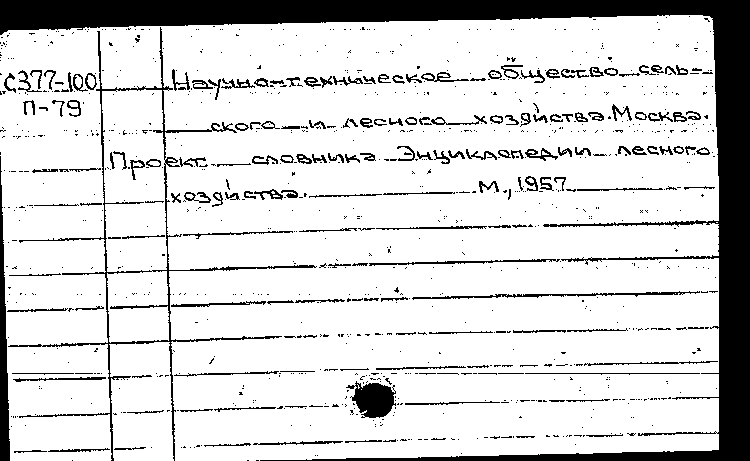 С377-100 Научно-техническое общество сель-
П-79
ского и лесного хозяйства. Москва.
Проект словника Энциклопедии лесного
хозяйства. М., 1957